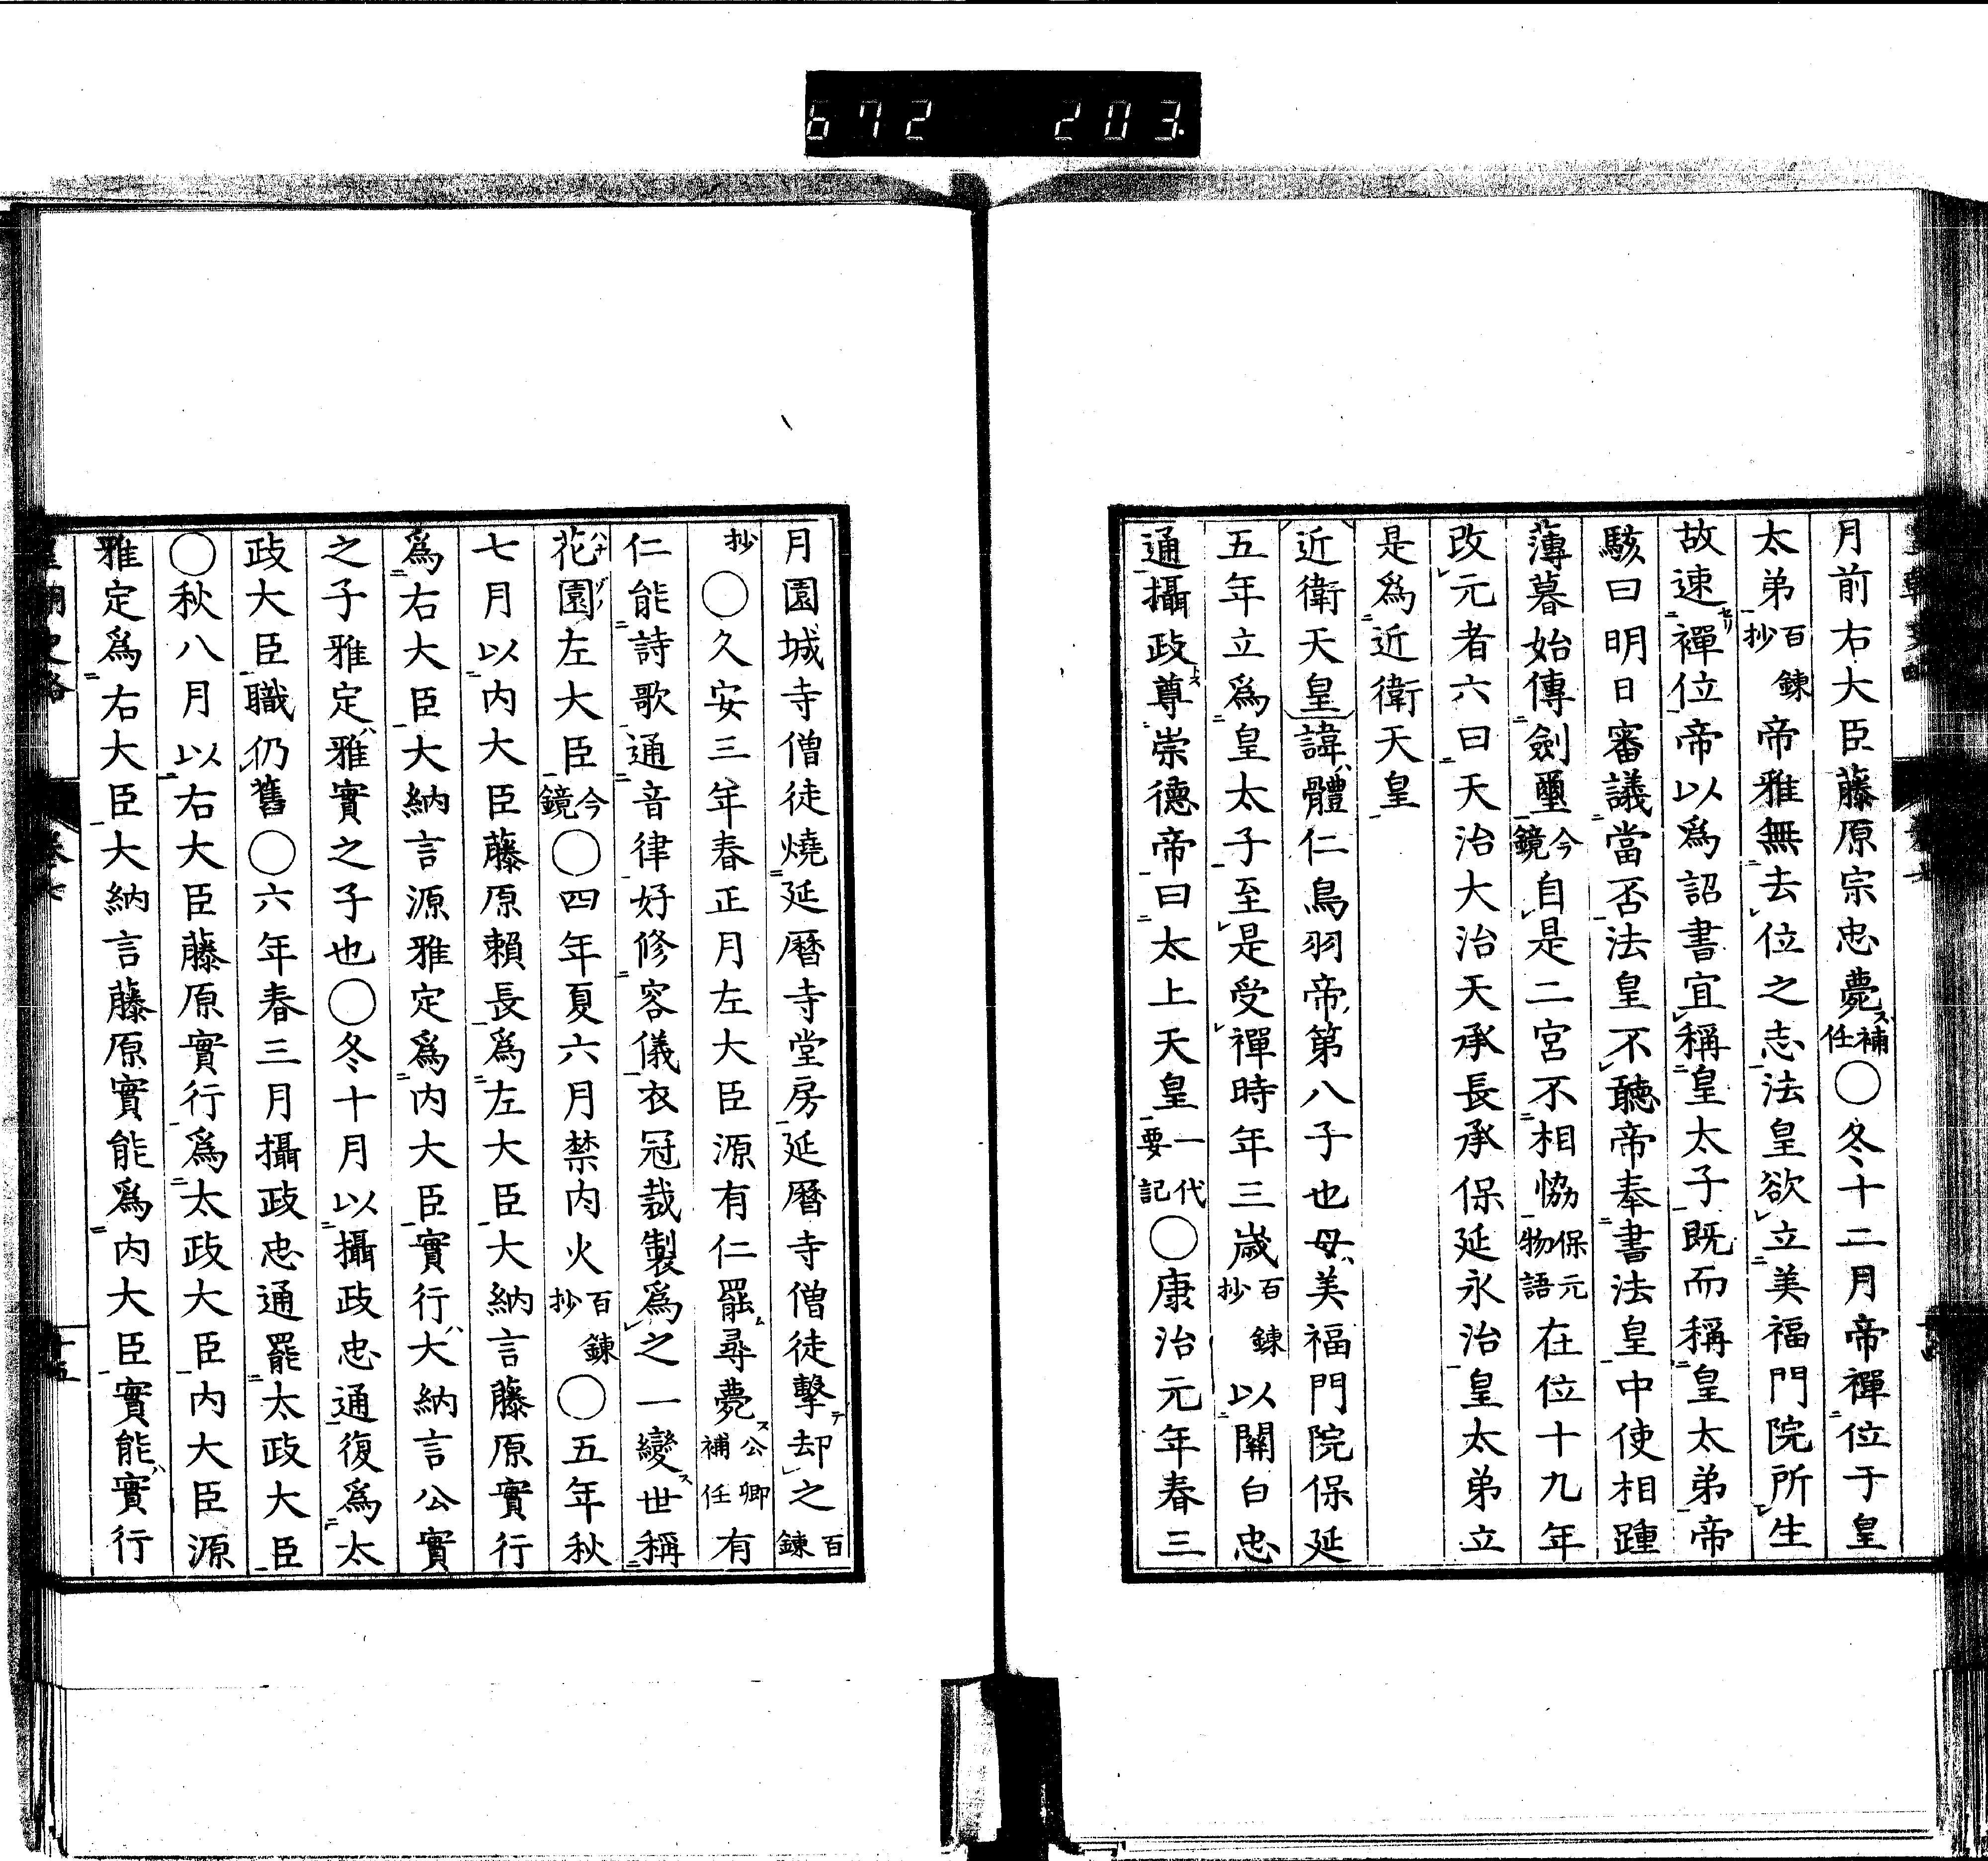 672 203
月前右大臣藤原宗忠薨補任〇冬十二月帝禪位于皇
太弟百鍊抄帝雅無去位之志法皇欲立美福門院所生
故速禪位帝以爲詔書宜稱皇太子既而稱皇太弟帝
駭曰明日審議當否法皇不聽帝奉書法皇中使相踵
薄暮始傳劍璽今鏡自是二宮不相恊保元物語在位十九年
改元者六曰天治大治天承長承保延永治皇太弟立
是爲近衛天皇
近衛天皇諱體仁鳥羽帝第八子也母美福門院保延
五年立爲皇太子至是受禪時年三歲百鍊抄以關白忠
通攝政尊崇德帝曰太上天皇一代要記〇康治元年春三
月園城寺僧徒燒延曆寺堂房延曆寺僧徒擊却之百鍊
抄〇久安三年春正月左大臣源有仁罷尋薨公卿補任有
仁能詩歌通音律好修容儀衣冠裁製爲之一變世稱
花園左大臣今鏡〇四年夏六月禁內火百鍊抄〇五年秋
七月以內大臣藤原賴長爲左大臣大納言藤原實行
爲右大臣大納言源雅定爲內大臣實行大納言公實
之子雅定雅實之子也〇冬十月以攝政忠通復爲太
政大臣職仍舊〇六年春三月攝政忠通罷太政大臣
〇秋八月以右大臣藤原實行爲太政大臣內大臣源
雅定爲右大臣大納言藤原實能爲內大臣實能實行